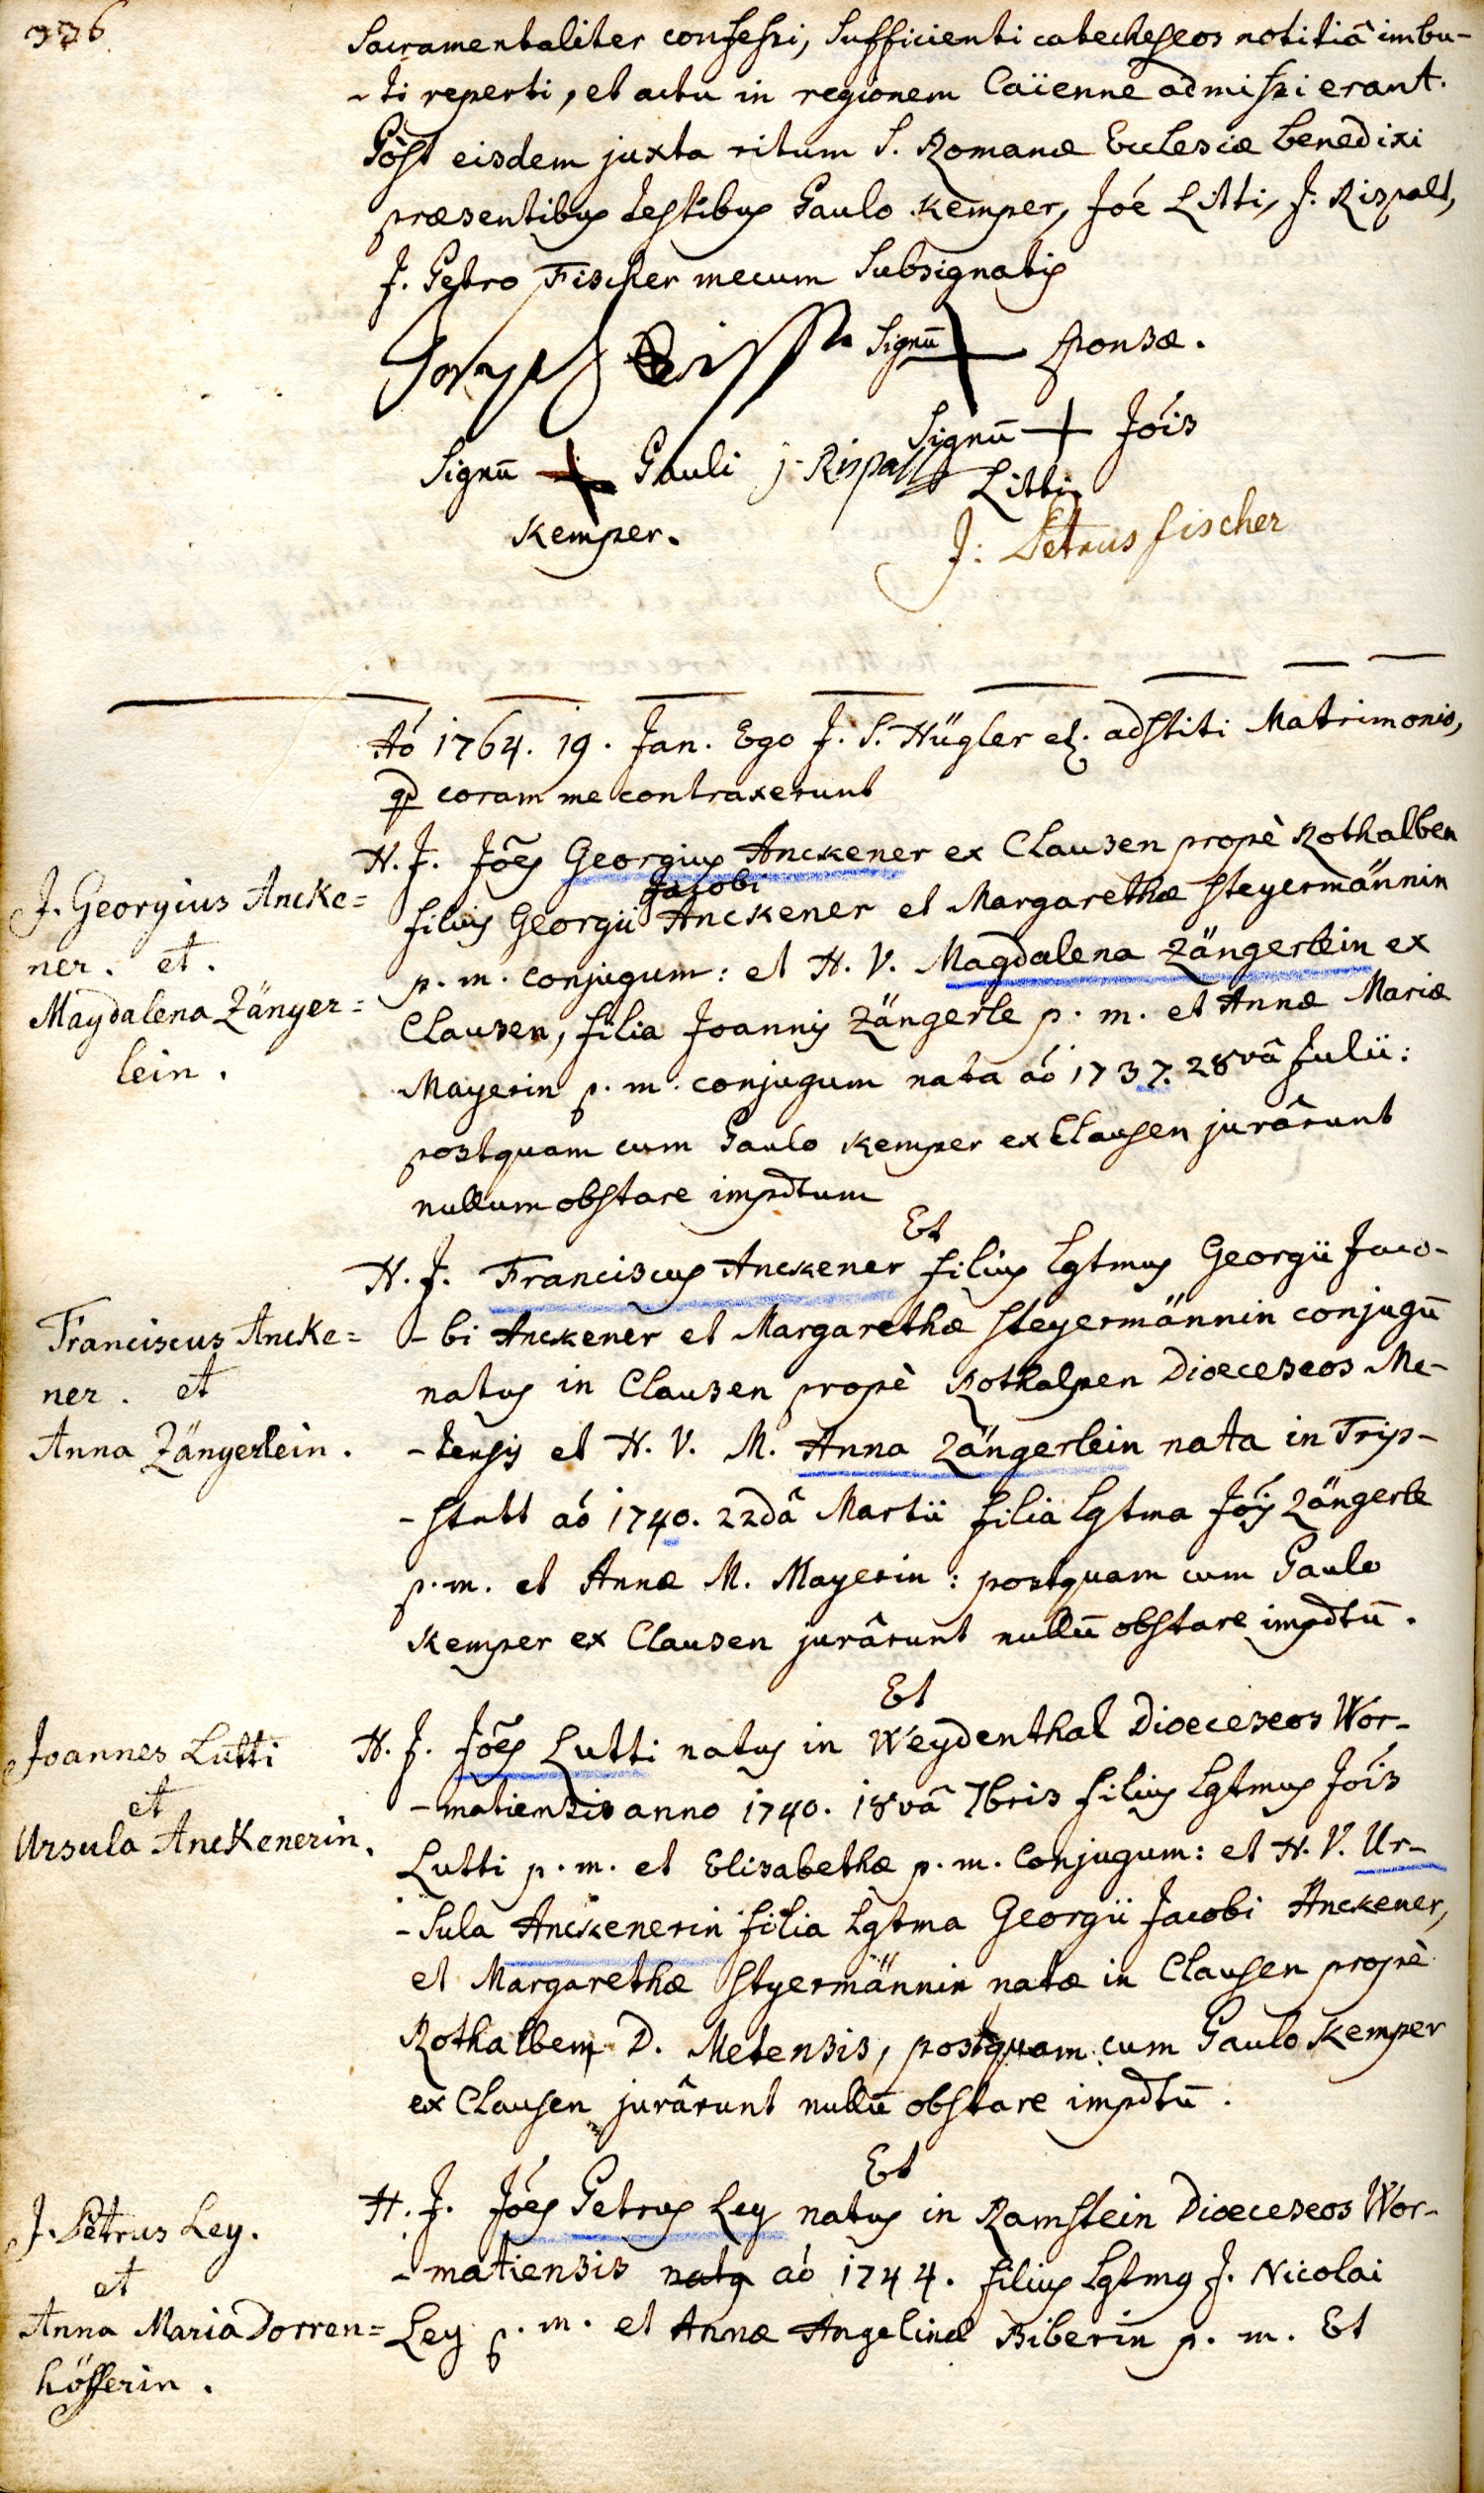 336
Sacramentaliter confessi, sufficienti catecheseos notitiâ imbu-
-ti reperti, et actu in regionem Caïenne admissi erant.
Post eisdem juxta ritum S. Romanæ Ecclesiæ benedixi
præsentibus testibus Paulo Kemper, Joé Litti, J. Rispalt,
J. Petro Fischer mecum subsignatis
Signū + sponsæ.
Signū + Jóis
Litti
Signū + Pauli
Kemper.
j. Rispalt
J: Petrus fischer
Aó 1764. 19. Jan. Ego J. S. Hügler adstiti Matrimonio,
qd coram me contraxerunt
J. Georgius Ancke=
ner. et.
Magdalena Zänger=
lein.
H. J. Jões Georgius Anckener ex Clausen propè Rothalben
filius Georgii Jacobi Anckener et Margarethæ Steyermännin
p. m. conjugum: et H. V. Magdalena Zängerlein ex
Clausen, filia Joannis Zängerle p. m. et Annæ Mariæ
Mayerin p. m. conjugum nata aó 1737. 28vâ Julii:
postquam cum Paulo Kemper ex Clausen jurârunt
nullum obstare impdtum
Et
Franciscus Ancke=
ner. et
Anna Zängerlein.
H. J. Franciscus Anckener filius lgtmus Georgii Jaco-
-bi Anckener et Margarethæ Steyermännin conjugū
natus in Clausen propè Rothalpen Dioeceseos Me-
-tensis et H. V. M. Anna Zängerlein nata in Trip-
-statt aó 1740. 22dâ Martii filia lgtma Jóis Zängerle
p. m. et Annæ M. Mayerin: postquam cum Paulo
Kemper ex Clausen jurârunt nullū obstare impdtū.
Et
Joannes Lutti
et
Ursula Anckenerin.
H. J. Jões Lutti natus in Weydenthal Dioeceseos Wor-
-matiensis anno 1740. 18vâ 7bris filius lgtmus Jóis
Lutti p. m. et Elisabethæ p. m. Conjugum: et H. V. Ur-
-sula Anckenerin filia lgtma Georgii Jacobi Anckener,
et Margarethæ Styermännin natæ in Clausen propè
Rothalben D. Metensis, postquam cum Paulo Kemper
ex Clausen jurârunt nullū obstare impdtū.
Et
J. Petrus Ley.
et
Anna Maria Dorren=
höfferin.
H. J. Jóes Petrus Ley natus in Ramstein Dioeceseos Wor-
-matiensis natq aó 1744. filius lgtmq J. Nicolai
Ley p. m. et Annæ Angelinæ Biberin p. m. Et